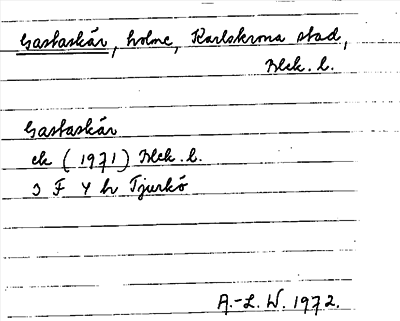 Gastaskär, holme, Karlskrona stad,
Blek. l.
Gastaskär
ek (1971) Blek. l.
3 F 4 h Tjurkö
A.-L. W. 1972.